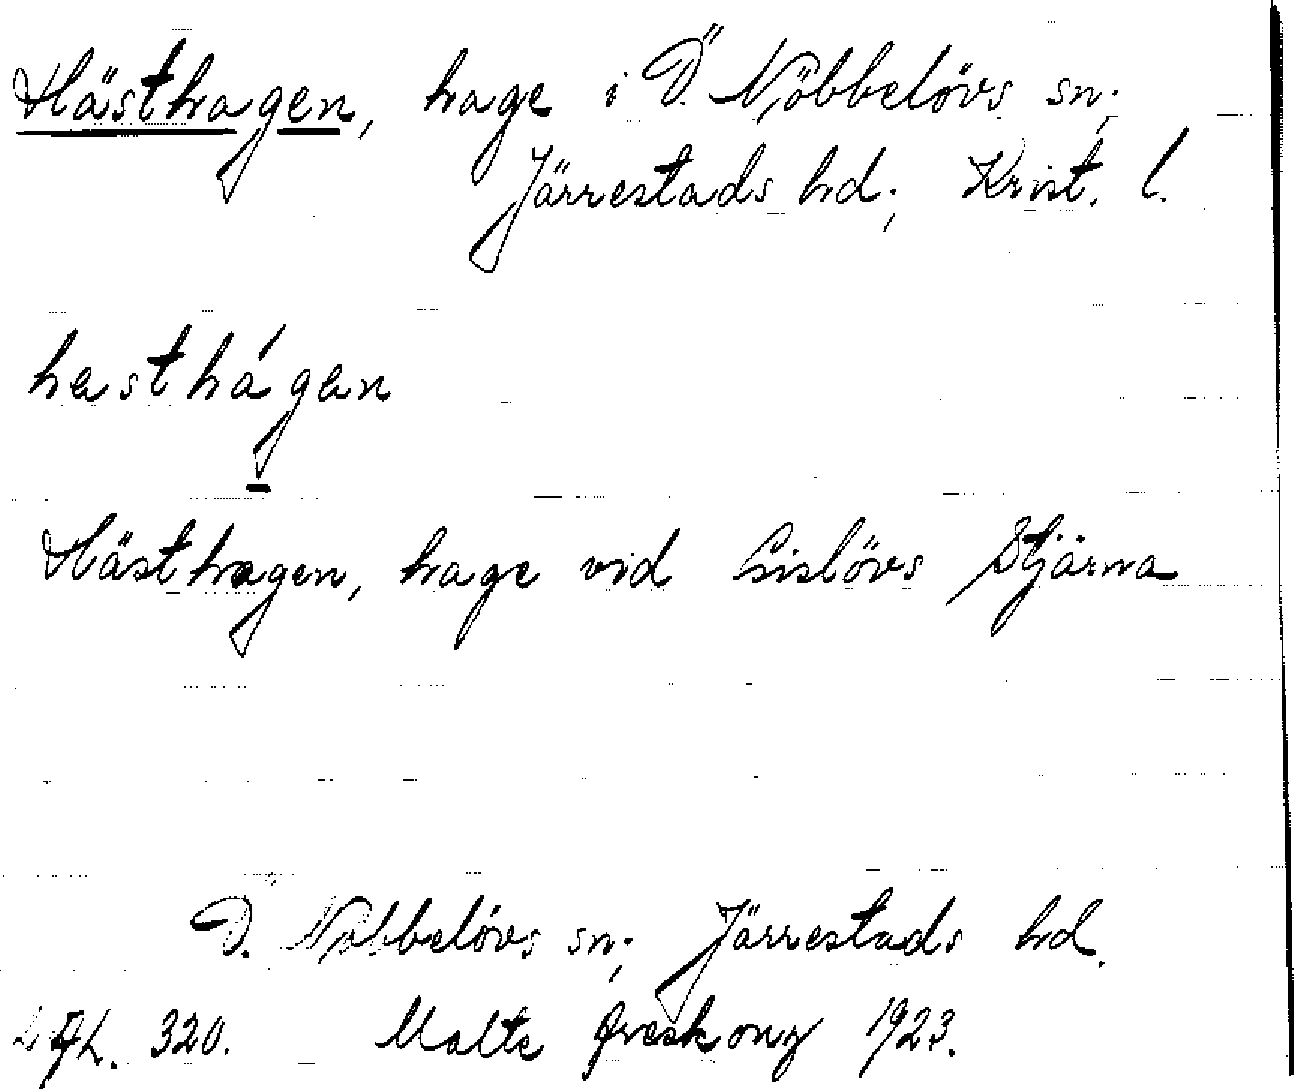 Hästhagen, hage i Ö. Nöbbelövs sn;
Järrestads hd; Krist. l.
hästhágen
Hästhagen, hage vid Gislövs Stjärna
Ö. Nöbbelövs sn; Järrestads hd.
320. Malte 1923.